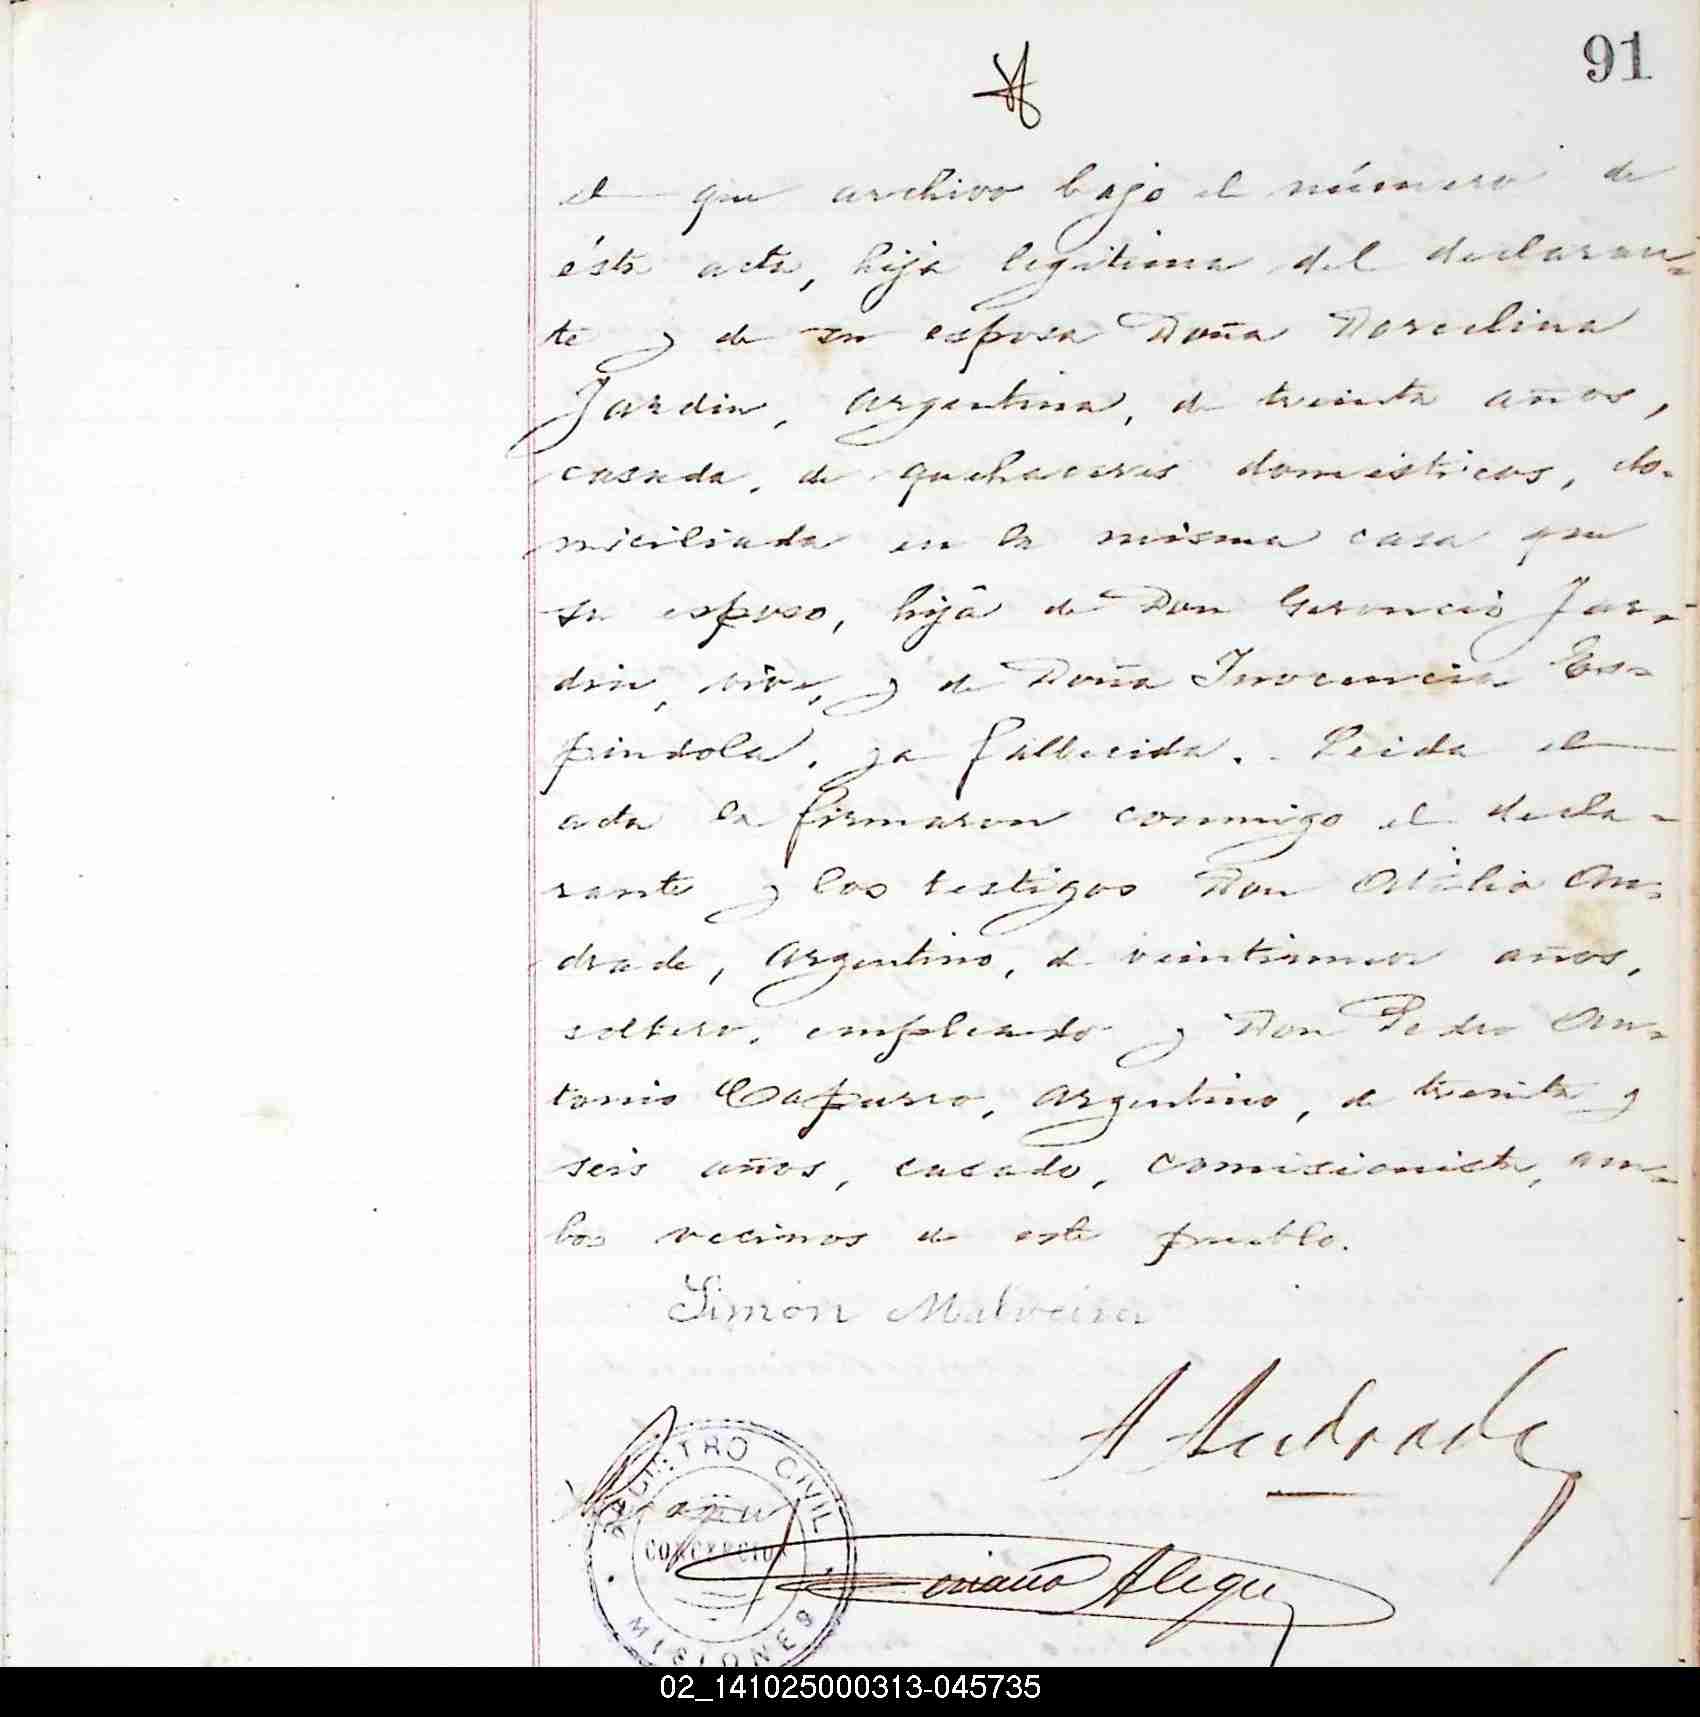 91
el que archivo bajo el número de
ésta acta, hija legitima del declaran-
te y de su esposa Doña Dorcelina
Jardin, argentina, de treinta años,
casada, de quehaceres domésticos, do-
miciliada en la misma casa que
su esposo, hija de Don Geroncio Jar-
din, vive, y de Doña Inocencia Es-
pindola, ya fallecida. - Leida el
acta la firmaron conmigo el decla-
rante y los testigos Don Atilio An-
drade, argentino, de años,
soltero, empleado y Don Pedro An-
tonio Capurro, argentino, de treinta y
seis años, casado, comisionista, am-
bos vecinos de este pueblo.
Simón Malveira
A Andrade
REGISTRO CIVIL
CONCEPCION
Alegre
MISIONES
02_141025000313-045735